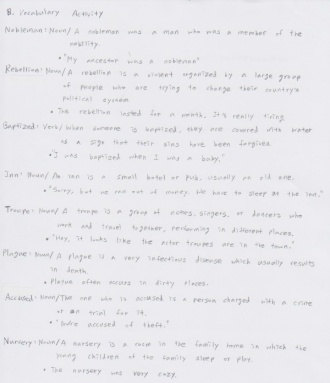 B. Vocabulary Activity
Nobleman: Noun/ A nobleman was a man who was a member of the
nobility
• "My ancestor was a nobleman"
Rebellion: Noun/ A rebellion is a violent organized by a large group
of people who are trying to change their country's
political system.
• The rebellion lasted for a month, It's really tiring.
Baptized: Verb/ When someone is baptized, they are covered with water
as a sign that their sins have been forgiven.
• "I was baptized when I was a baby."
Inn: Noun/ An inn is a small hotel or pub, usually an old one.
• "Sorry, but we ran out of money. We have to sleep at the inn."
Troupe: Noun/ A troupe is a group of actors, singers, or dancers who
work and travel together, performing in different places.
• "Hey, it looks like the actor troupes are in the town."
Plague: Noun/ A plague is a very infectious disease which usually results
in death.
• Plague often occurs in dirty places.
Accused: Noun/The one who is accused is a person charged with a crime
or on trial for it.
• "You're accused of theft."
Nursery: Noun/ A nursery is a room in the family home in which the
young children of the family sleep or play.
• The nursery was very cozy.